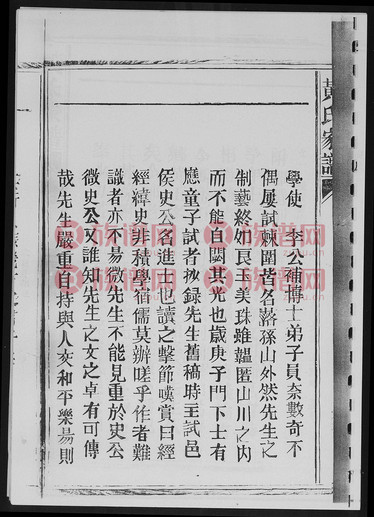 黄氏家譜
學使李公補博士弟子員奈數奇不
偶屢試棘圍皆名落孫山外然先生之
制藝終如良玉美珠雖韞匱山川之内
而不能自閟其光也歲庚子門下士有
應童子試者抄録先生舊稿時主試邑
侯史公名進士也讀之擊節嘆賞曰經
經緯史非積學宿儒莫辦嗟乎作者難
識者亦不易微先生不能見重於史公
微史公又誰知先生之文之卓有可傳
哉先生嚴重自持與人亥和平樂易則
族譜网
族譜网
族譜网
族譜网